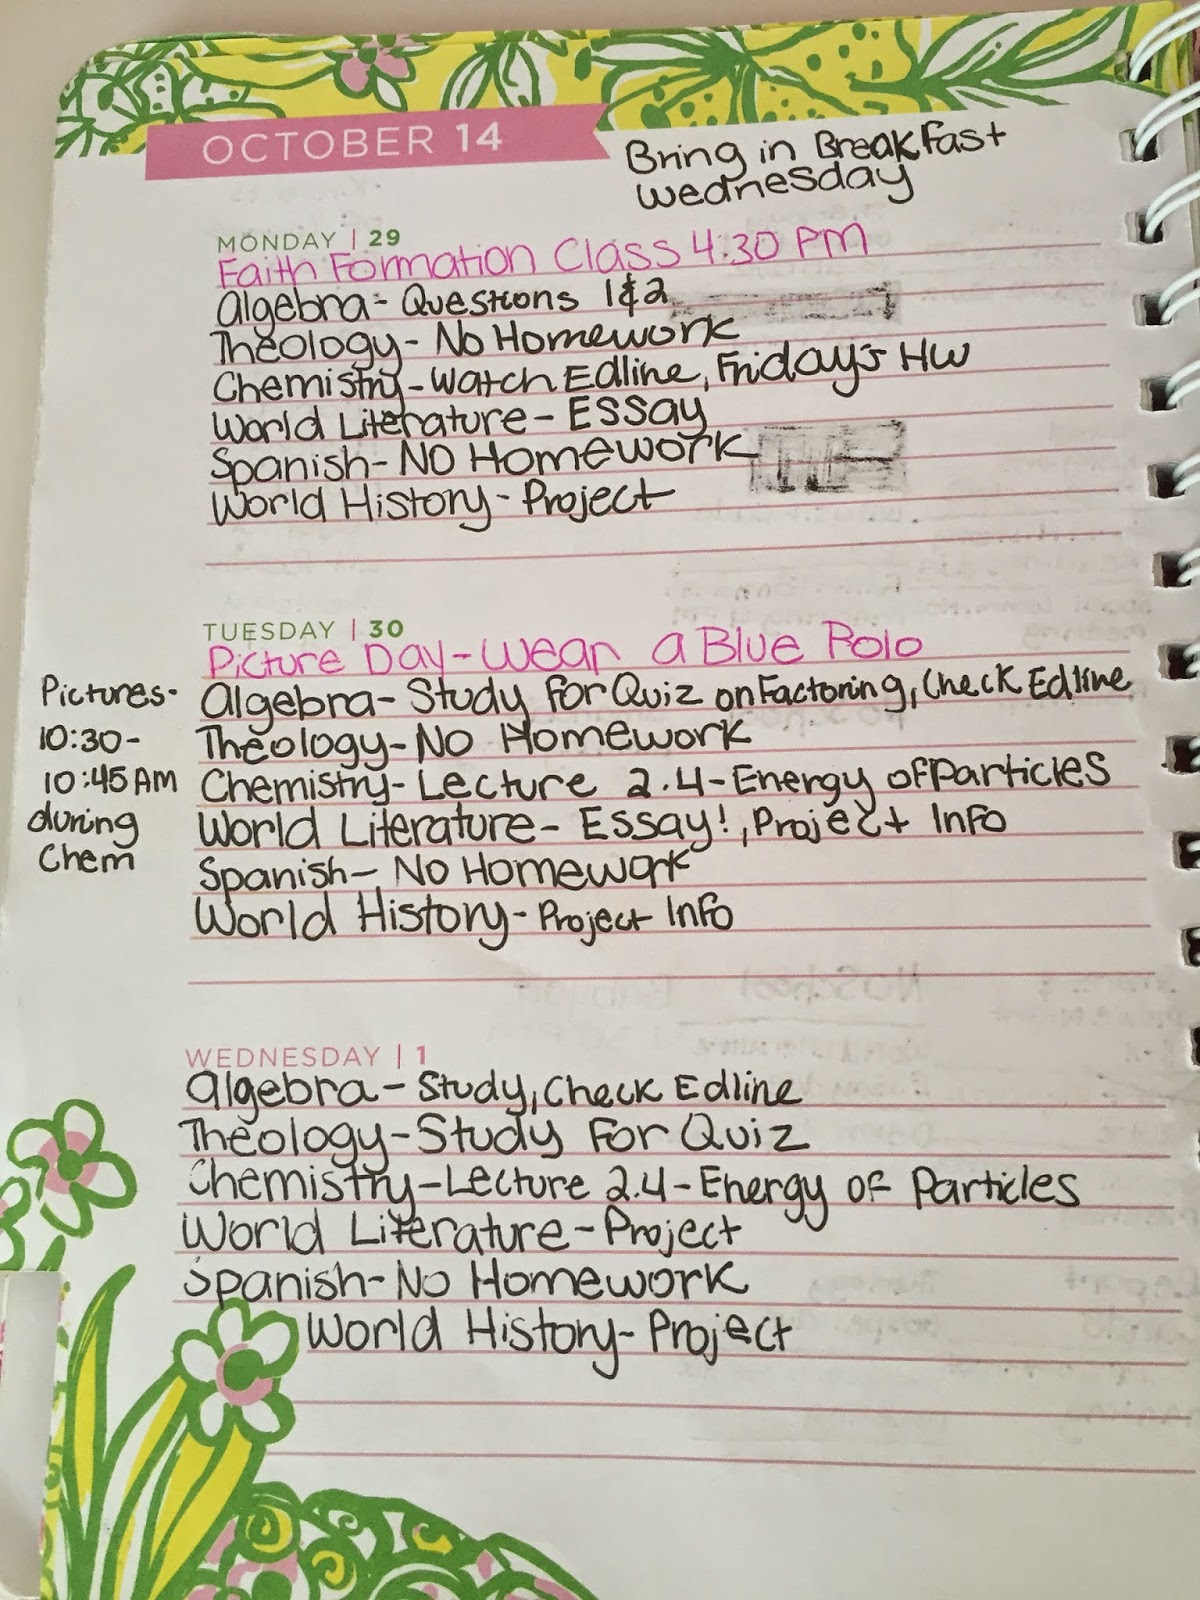 OCTOBER 14
Bring in Breakfast
Wednesday
MONDAY | 29
Faith Formation Class 4:30 PM
Algebra- Questions 1&2
Theology- No Homework
Chemistry- Watch Edline, Friday's HW
World Literature- Essay
Spanish- No Homework
World History- Project
TUESDAY | 30
Picture Day- Wear a Blue Polo
Pictures-
10:30-
10:45 AM
during
Chem
Algebra- Study for Quiz on Factoring, Check Edline
Theology- No Homework
Chemistry- Lecture 2.4- Energy of Particles
World Literature- Essay!, Project Info
Spanish- No Homework
World History- Project Info
WEDNESDAY | 1
Algebra- Study, Check Edline
Theology- Study for Quiz
Chemistry- Lecture 2.4- Energy of Particles
World Literature- Project
Spanish- No Homework
World History- Project